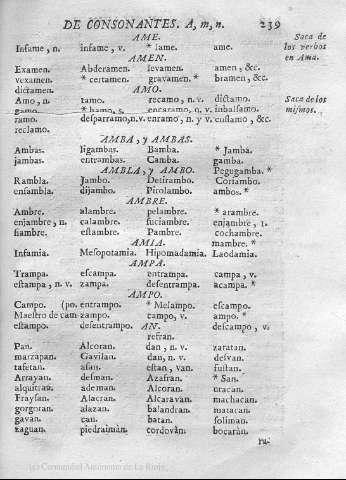 DE CONSONANTES. A, m, n. 239
AME.
Infame, n. infame, v. * lame. ame.
Saca de
los verbos
en Ama.
AMEN.
Examen. Abderamen. levamen. amen, &c.
vexamen. * certamen. gravamen. * bramen, &c.
dictamen.
AMO.
Amo, n. tamo. recamo, n. v. dictamo.
Saca de los
mismos.
gamo. * bamo, s. encaramo, n. v. inbalsamo.
ramo. desparramo, n.v. enramo, n. y v. ensalamo, &c.
reclamo.
AMBA, y AMBAS.
Ambas. ligambas. Bamba. * Jamba.
jambas. entrambas. Camba. gamba.
AMBLA, y AMBO. Pegugamba. *
Rambla. Jambo. Destrambo. Coriambo.
ensambla. dijambo. Pirolambo. ambos. *
AMBRE.
Ambre. alambre. pelambre. * arambre.
enjambre, n. calambre. fuciambre. enjambre, 1.
fiambre. estambre. Pambre. cochambre.
AMIA. mambre. *
Infamia. Mesopotamia. Hipomadamia. Laodamia.
AMPA.
Trampa. escampa. entrampa. campa, v.
estampa, n. v. zampa. desentrampa. acampa. *
AMPO.
Campo. (po. entrampo. * Melampo. escampo.
Maestro de cam zampo. campo, v. ampo. *
estampo. desentrampo. AN. descampo, v.
refran.
Pan. Alcoran. dan, n. v. zaratan.
marzapan. Gavilan. dan, n. v. desvan.
tafetan. afan. estan, van. fustan.
Arrayan. desman. Azafran. * San.
alquitran. ademan. Alcoran. uracan.
Fraysan. Alacran. Alcaravan. machacan.
gorgoran. alazan. balandran. matacan.
gavan. can. batan. soliman.
zaguan. piedraimàn. cordovàn. bocaràn.
ru-
(c) Comunidad Autónoma de La Rioja